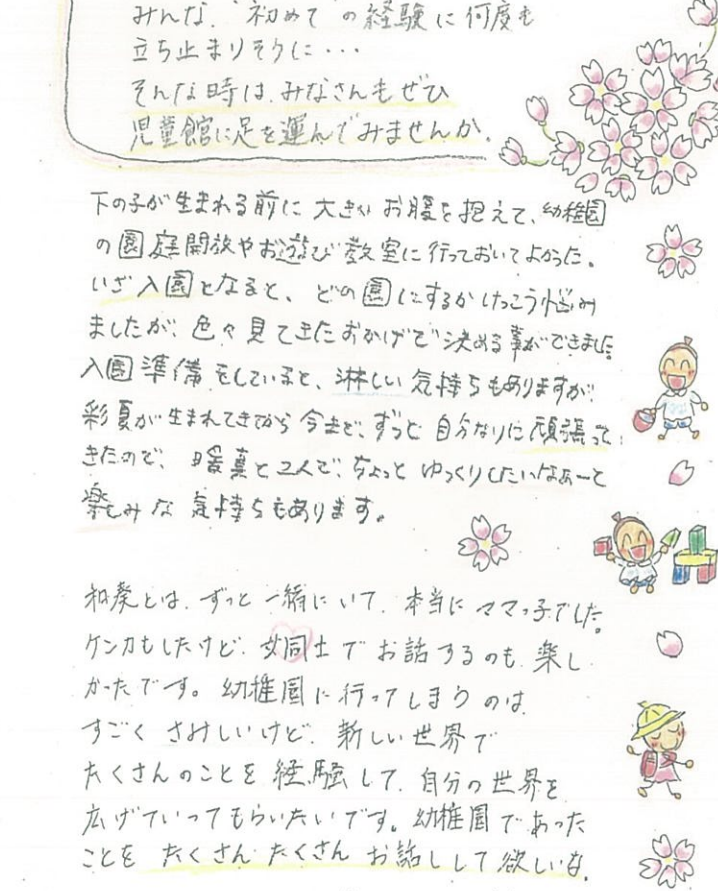 みんな、“初めて”の経験に何度も
立ち止まりそうに・・・
そんな時は、みなさんもぜひ
児童館に足を運んでみませんか。
下の子が生まれる前に大きなお腹を抱えて、幼稚園
の園庭開放やお遊び教室に行っておいてよかった。
いざ入園となると、どの園にするかけっこう悩み
ましたが、色々見てきたおかげで決める事ができました。
入園準備をしていると、淋しい気持ちもありますが、
彩夏が生まれてきてから今まで、ずっと自分なりに頑張って
きたので、暖真と2人で、ちょっとゆっくりしたいなぁーと
楽しみな気持ちもあります。
和葵とは、ずっと一緒にいて、本当にママっ子でした。
ケンカもしたけど、女同士でお話するのも楽し
かったです。幼稚園に行ってしまうのは
すごくさみしいけど、新しい世界で
たくさんのことを経験して、自分の世界を
広げていってもらいたいです。幼稚園であった
ことをたくさんたくさんお話しして欲しいな。